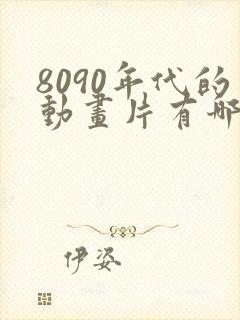 8090年代的
動畫片有哪
伊姿